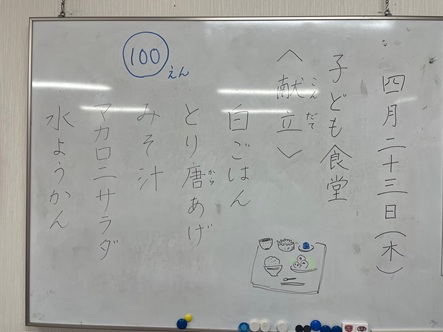 四月二十三日(木)
子ども食堂
〈献立〉
こんだて
白ごはん
とり唐あげ
から
みそ汁
マカロニサラダ
水ようかん
100えん